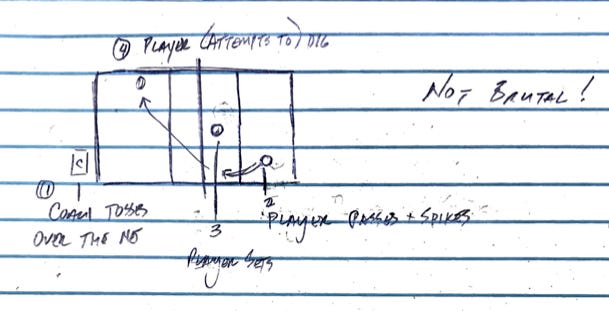 ④ PLAYER (ATTEMPTS TO) DIG
NOT BRUTAL!
C
①
COACH TOSSES
OVER THE NE
2
PLAYER PASSES + SPIKES
3
PLAYER SETS